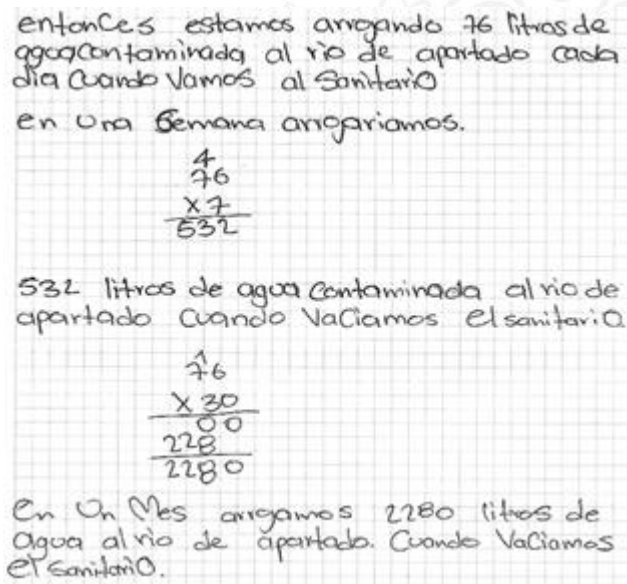 entonces estamos arrogando 76 litros de
agua contaminada al rio de apartado cada
dia cuando Vamos al Sanitario
en una semana arrogariamos.
4
76
x7
532
532 litros de agua contaminada al rio de
apartado cuando Vaciamos el sanitario
1
76
x 30
00
228
2280
en un Mes arrogamos 2280 litros de
agua al rio de apartado. Cuando Vaciamos
el sanitario.